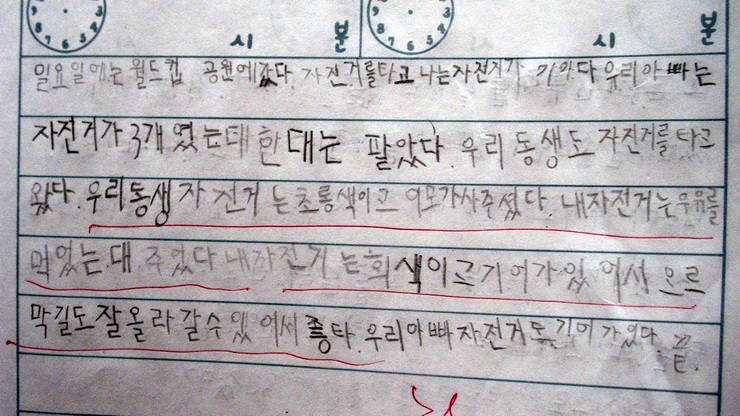 9 3 8 4 7 6 5 9 3 8 4 7 6 5
시 분 시 분
일요일에는 월드컵 공원에갔다. 자전거를타고 나는자전거가 기어다 우리아빠는
자전거가 3개였는데 한대는 팔았다. 우리동생도 자전거를타고
왔다. 우리동생 자전거는초롱색이고 이모가사주셨다. 내자전거는우유를
먹었는대 주었다 내자전거는희색이고기어가있어서 오르
막길도잘올라갈수있어서 좋다. 우리아빠자전거도기어가있다. 끝.